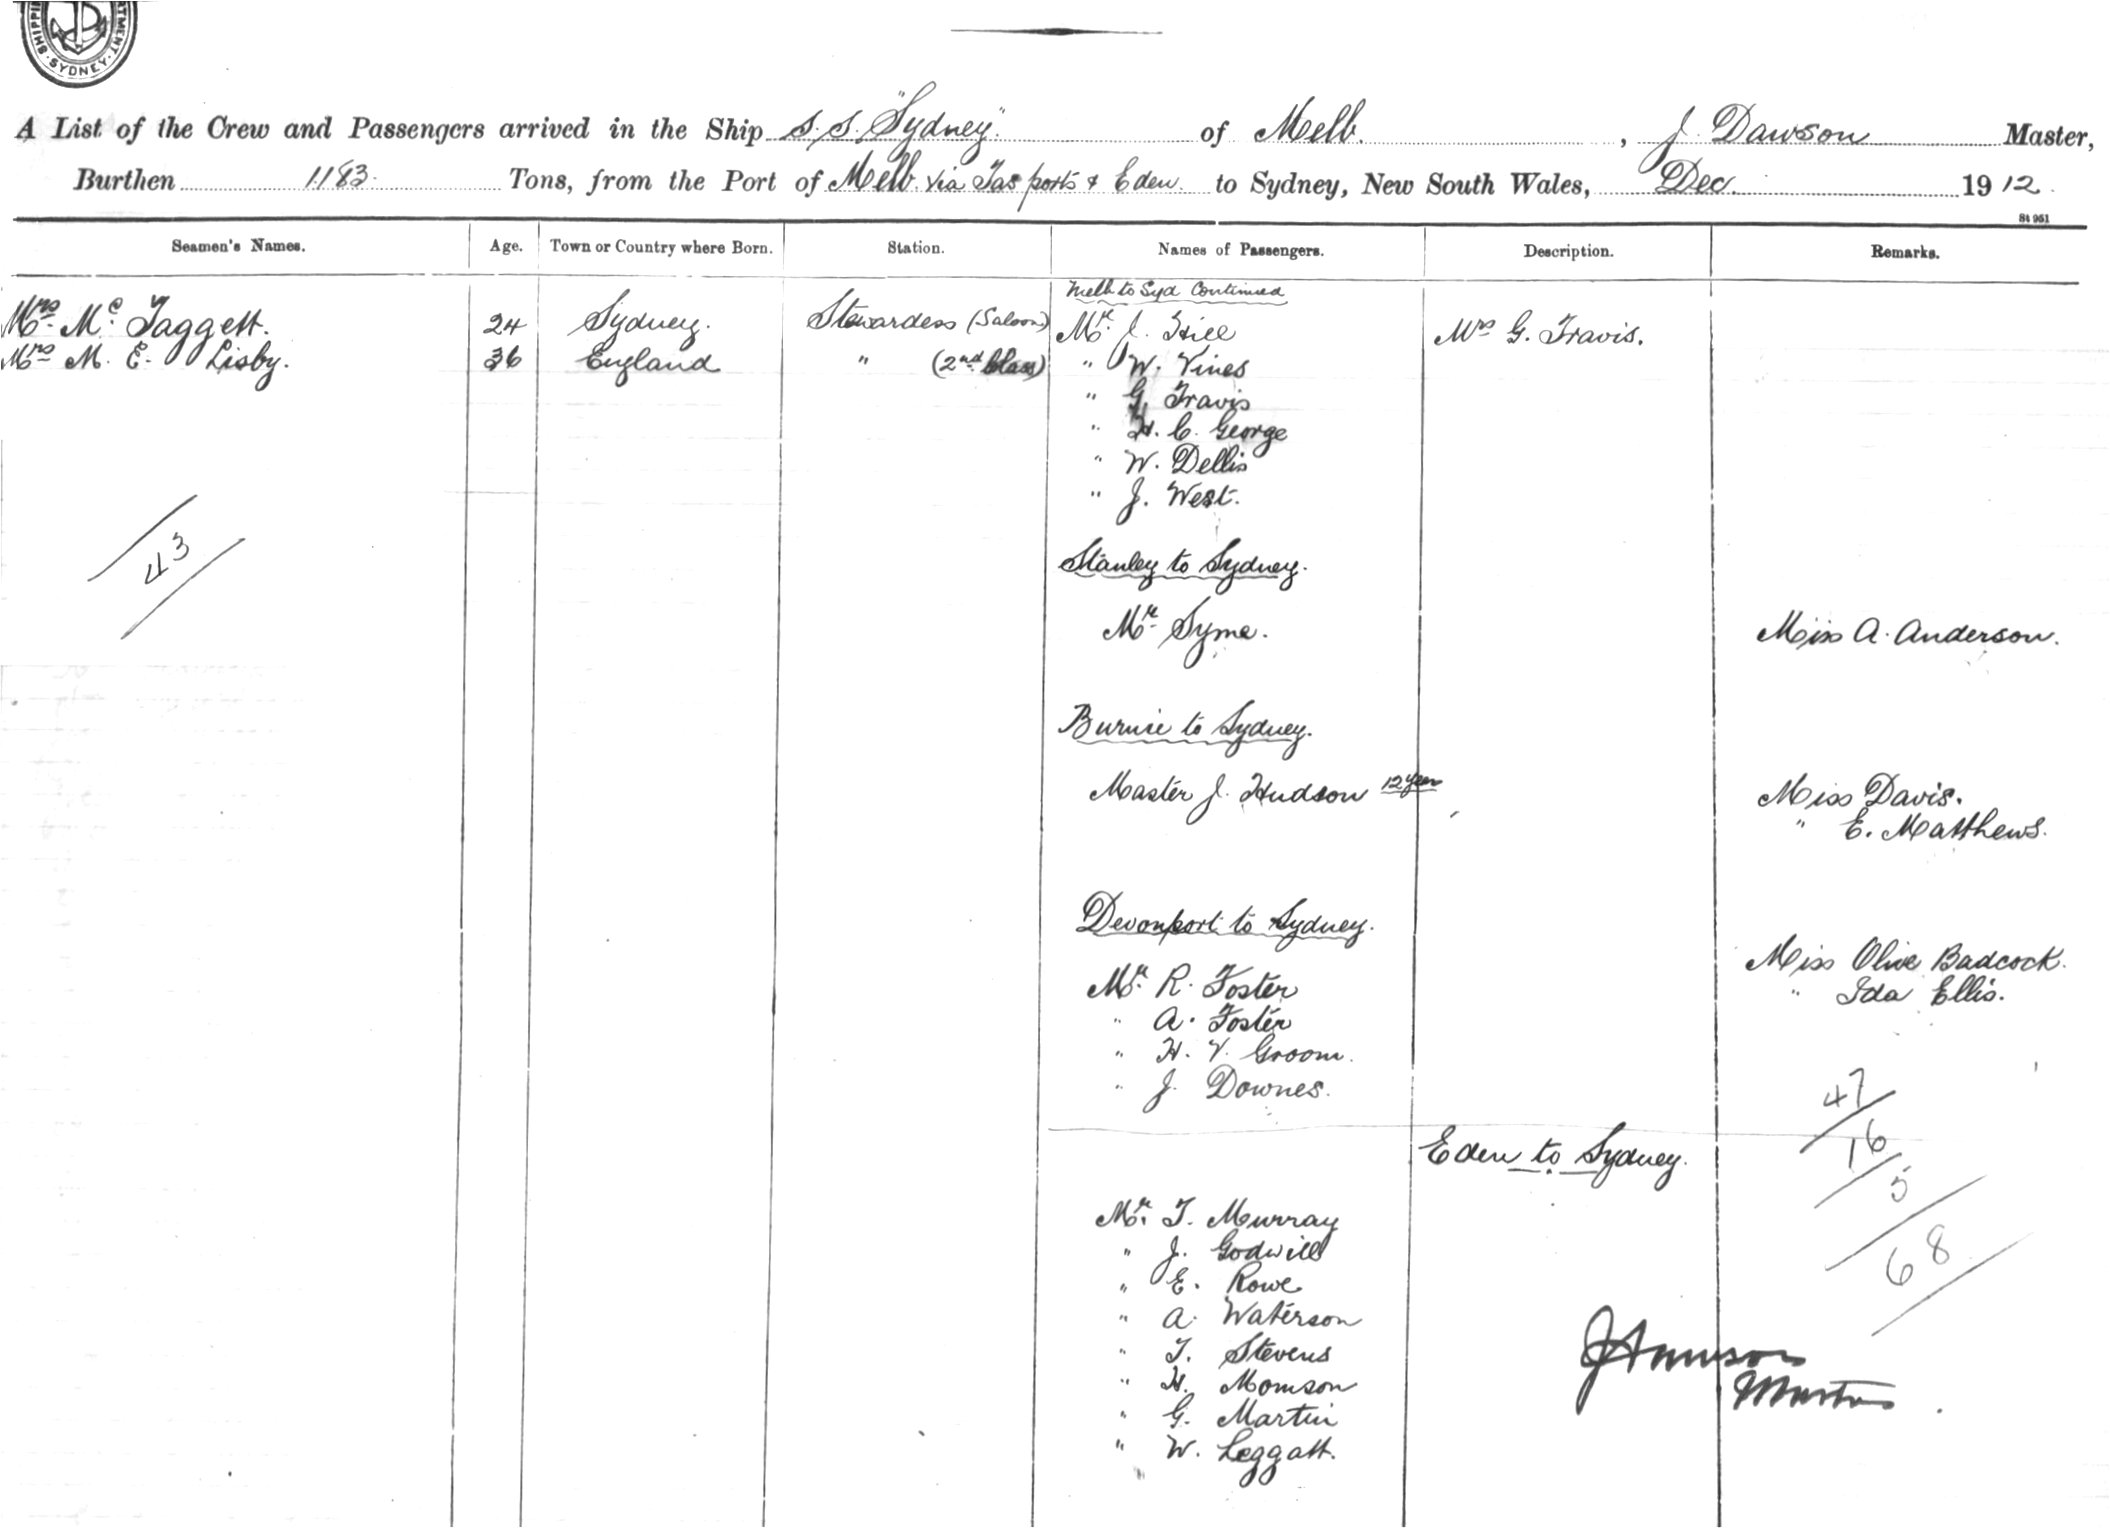 SHIPPI
ATMENT
SYDNEY
A List of the Crew and Passengers arrived in the Ship S.S. "Sydney" of Melb. , J. Dawson Master,
Burthen 1183 Tons, from the Port of Melb. via Tas ports & Eden to Sydney, New South Wales, Dec. 1912
St 951
Seamen's Names. Age. Town or Country where Born. Station. Names of Passengers. Description. Remarks.
Melb to Syd Continued
Mrs. Mc. Taggett. 24 Sydney. Stewardess (Saloon) Mr. J. Hill Mrs G. Travis.
Mrs M. E. Lisby. 36 England " (2nd Class) " W. Vines
" G. Travis
" H. C. George
" W. Dellis
" J. West.
43
Stanley to Sydney.
Mr. Syme. Miss A. Anderson.
Burnie to Sydney.
Master J. Hudson 12 years Miss Davis.
" E. Matthews.
Devonport to Sydney.
Mr. R. Foster Miss Olive Badcock.
" A. Foster " Ida Ellis.
" H. V. Groom.
" J. Downes.
47
16
5
68
Eden to Sydney.
Mr. T. Murray
" J. Godwill
" E. Rowe
" A. Waterson
" T. Stevens
" H. Momson
" G. Martin
" W. Leggatt.
J Dawson
Master